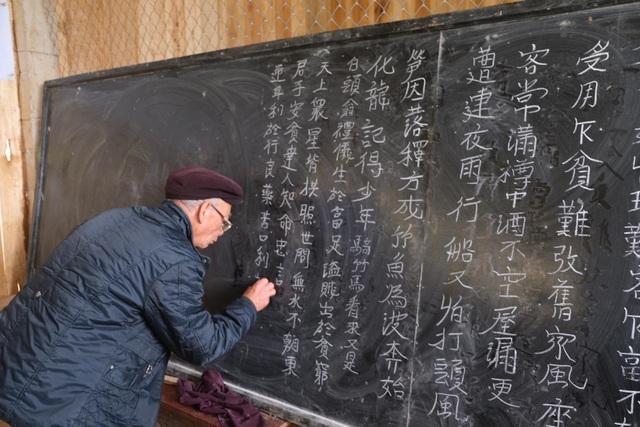 受用欠貧難改舊家風座
客常滿樽中酒不空屋漏更
遭連夜雨行船又怕打頭風
筍因落釋方成竹魚為波奔始
化龍記得少年騎竹馬看來又是
白頭翁禮儀生於富足盜賊出於貧窮
天上眾星皆拱照世間無水不朝東
君子安貧達人知命忠言
逆耳利於行良藥苦口利